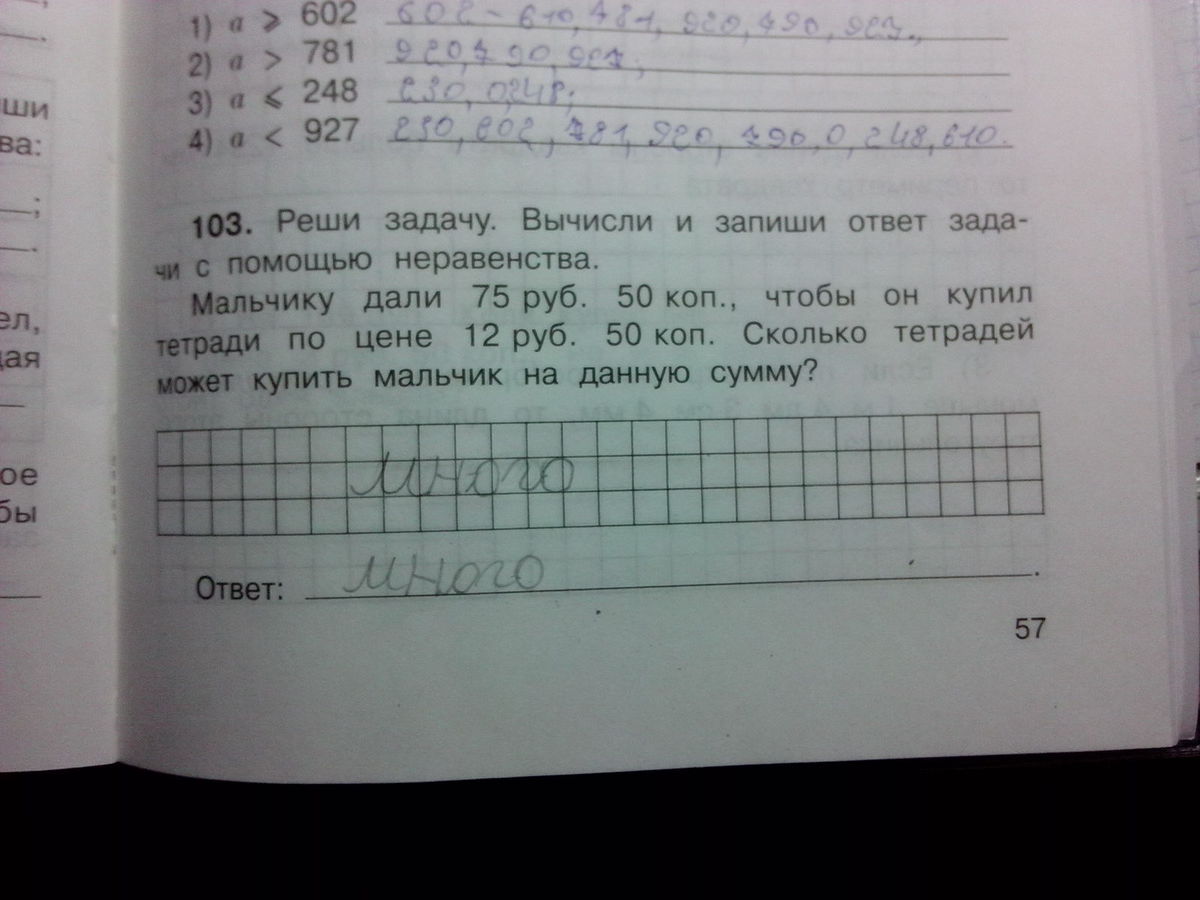 1) a ⩾ 602 602 - 610, 781, 920, 790, 927.,
2) a > 781 920, 790, 927;
3) a ⩽ 248 230, 0248;
4) a < 927 230, 602, 781, 920, 790, 0, 248, 610.
ши
ва:
;
103. Реши задачу. Вычисли и запиши ответ зада-
чи с помощью неравенства.
Мальчику дали 75 руб. 50 коп., чтобы он купил
ел,
тетради по цене 12 руб. 50 коп. Сколько тетрадей
ая
может купить мальчик на данную сумму?
ое
много
бы
Ответ: много.
57